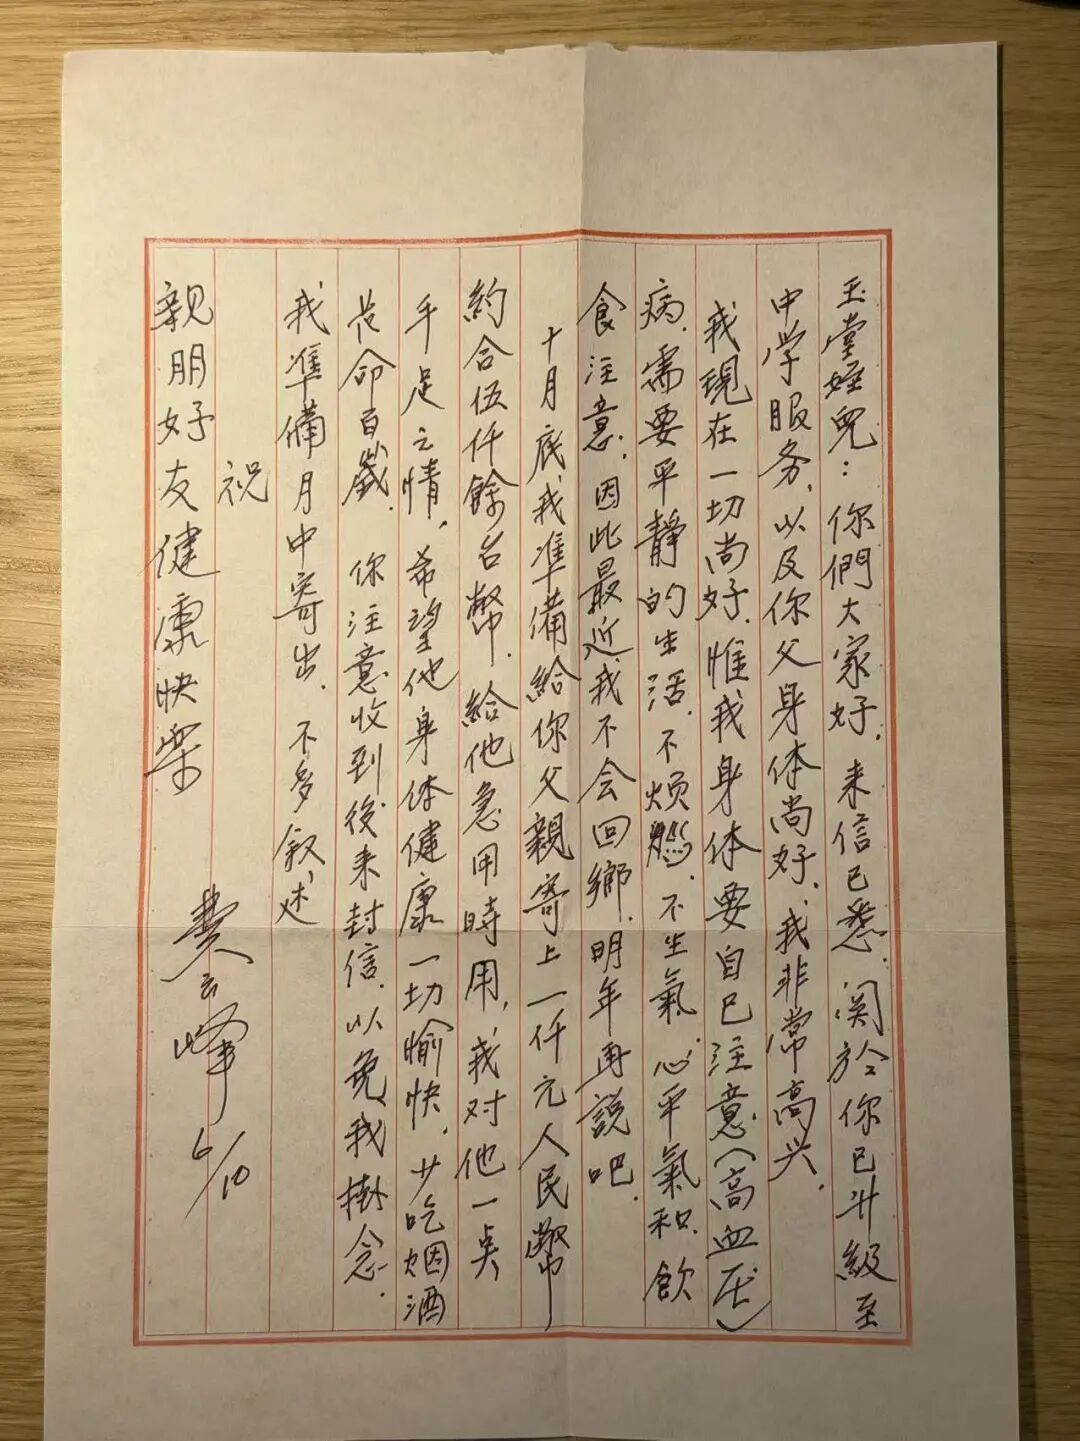 玉堂姪兒：你們大家好．来信已悉．関於你已升級至
中学服务．以及你父身体尚好．我非常高兴．
我現在一切尚好．惟我身体要自己注意（高血压）
病．需要平靜的生活．不煩燃．不生氣．心平氣和．飲
食注意．因此最近我不会回鄉．明年再說吧．
十月底我準備給你父親寄上一仟元人民幣
約合伍仟餘台幣．給他急用時用，我对他一点
手足之情，希望他身体健康一切愉快，少吃烟酒
长命百歲．你注意收到後来封信．以免我掛念．
我準備月中寄出．不多叙述
祝
親朋好友健康快楽
費云峰 6/10